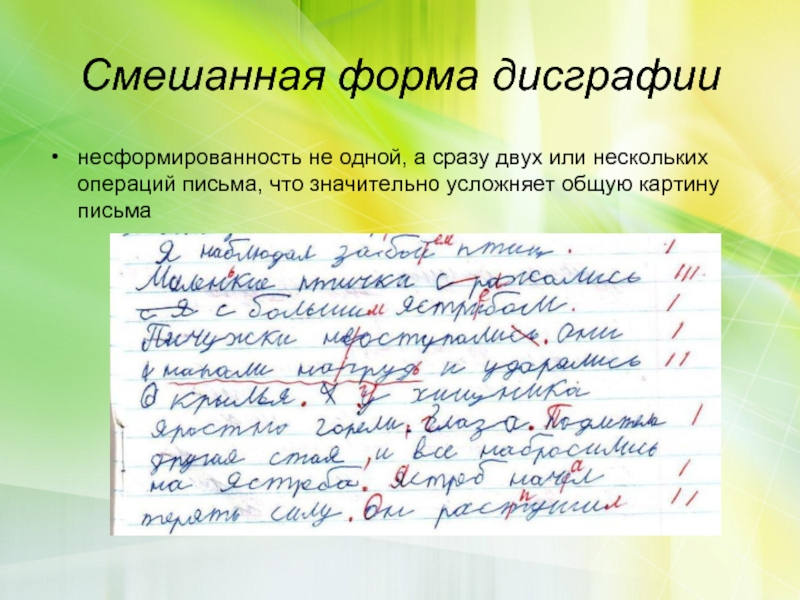 Смешанная форма дисграфии
• несформированность не одной, а сразу двух или нескольких
операций письма, что значительно усложняет общую картину
письма
Я наблюдал за бой птиц.
Маленькие птички с ражались
с я с большим ястребом.
Пичужки не оступались. Они
и напали на грудь и ударялись
О крылья. У хищника
яростно горели глаза. Подлетела
другая стая, и все набросились
на ястреба. Ястреб начал
терять силу. Он распушил